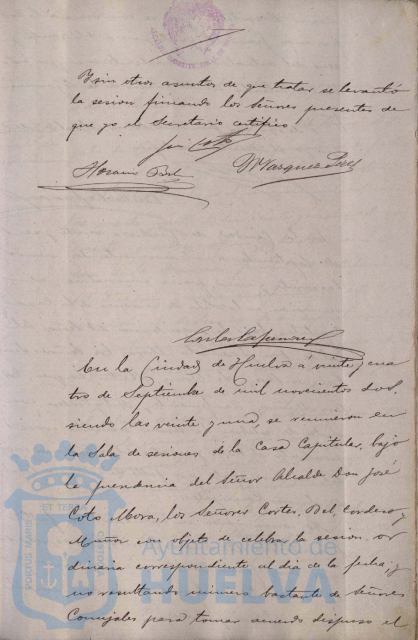 Y sin otros asuntos de que tratar se levantó
la sesion firmando los Señores presentes de
que yo el Secretario certifico
José Coto
Horacio Bel
M Vazquez Perez
En la Ciudad de Huelva á veinte y cua
tro de Septiembre de mil novecientos dos,
siendo las veinte y una, se reunieron en
la Sala de sesiones de la Casa Capitular, bajo
la presidencia del Señor Alcalde Don José
Coto Mora, los Señores Cortes, Bel, Cordero y
Muñoz con objeto de celebrar la sesion or
dinaria correspondiente al dia de la fecha, y
no resultando número bastante de Señores
Concejales para tomar acuerdo dispuso el
PORTUS MARIS
ET TERRAE
Ayuntamiento de
HUELVA